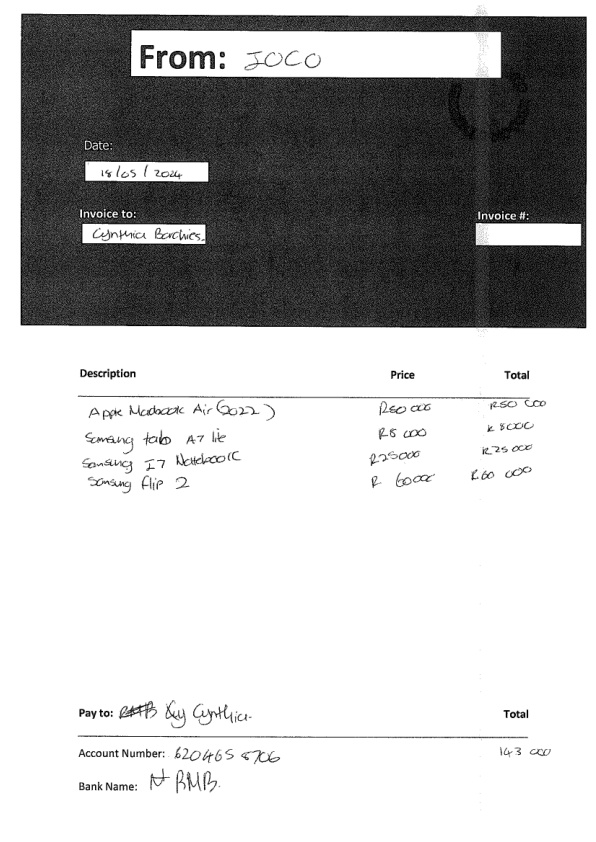 From: JOCO
Date:
18/05/2024
Invoice to: Invoice #:
Cynthia Barchies.
Description Price Total
Apple Macbook Air (2022) R50 000 R50 000
Samsung tab A7 lite R8 000 R 8000
Samsung I7 Notebook R25000 R25 000
Samsung flip 2 R 60000 R60 000
Pay to: Cynthia. Total
Account Number: 143 000
Bank Name: RMB.